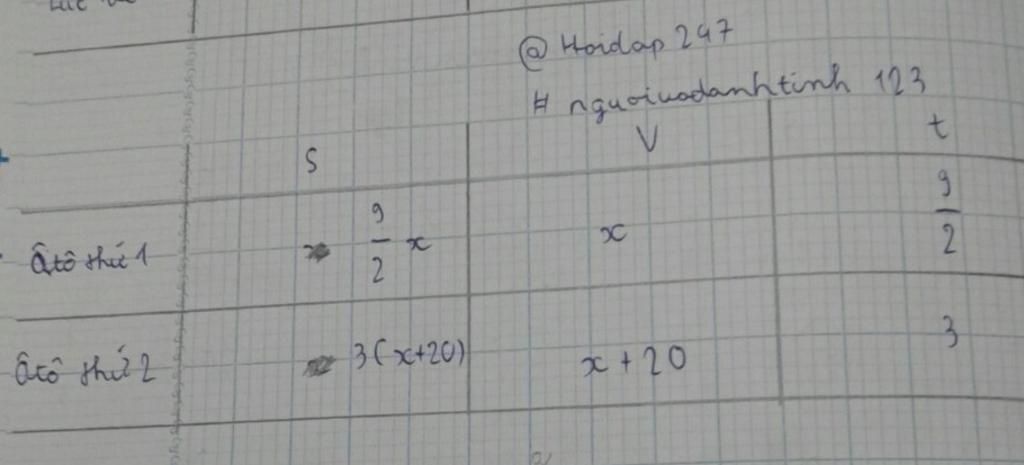 @ Hoidap 247
# nguoivodanhtinh 123
S V t
Ôtô thứ 1 9/2 x x 9/2
Ôtô thứ 2 3(x+20) x + 20 3